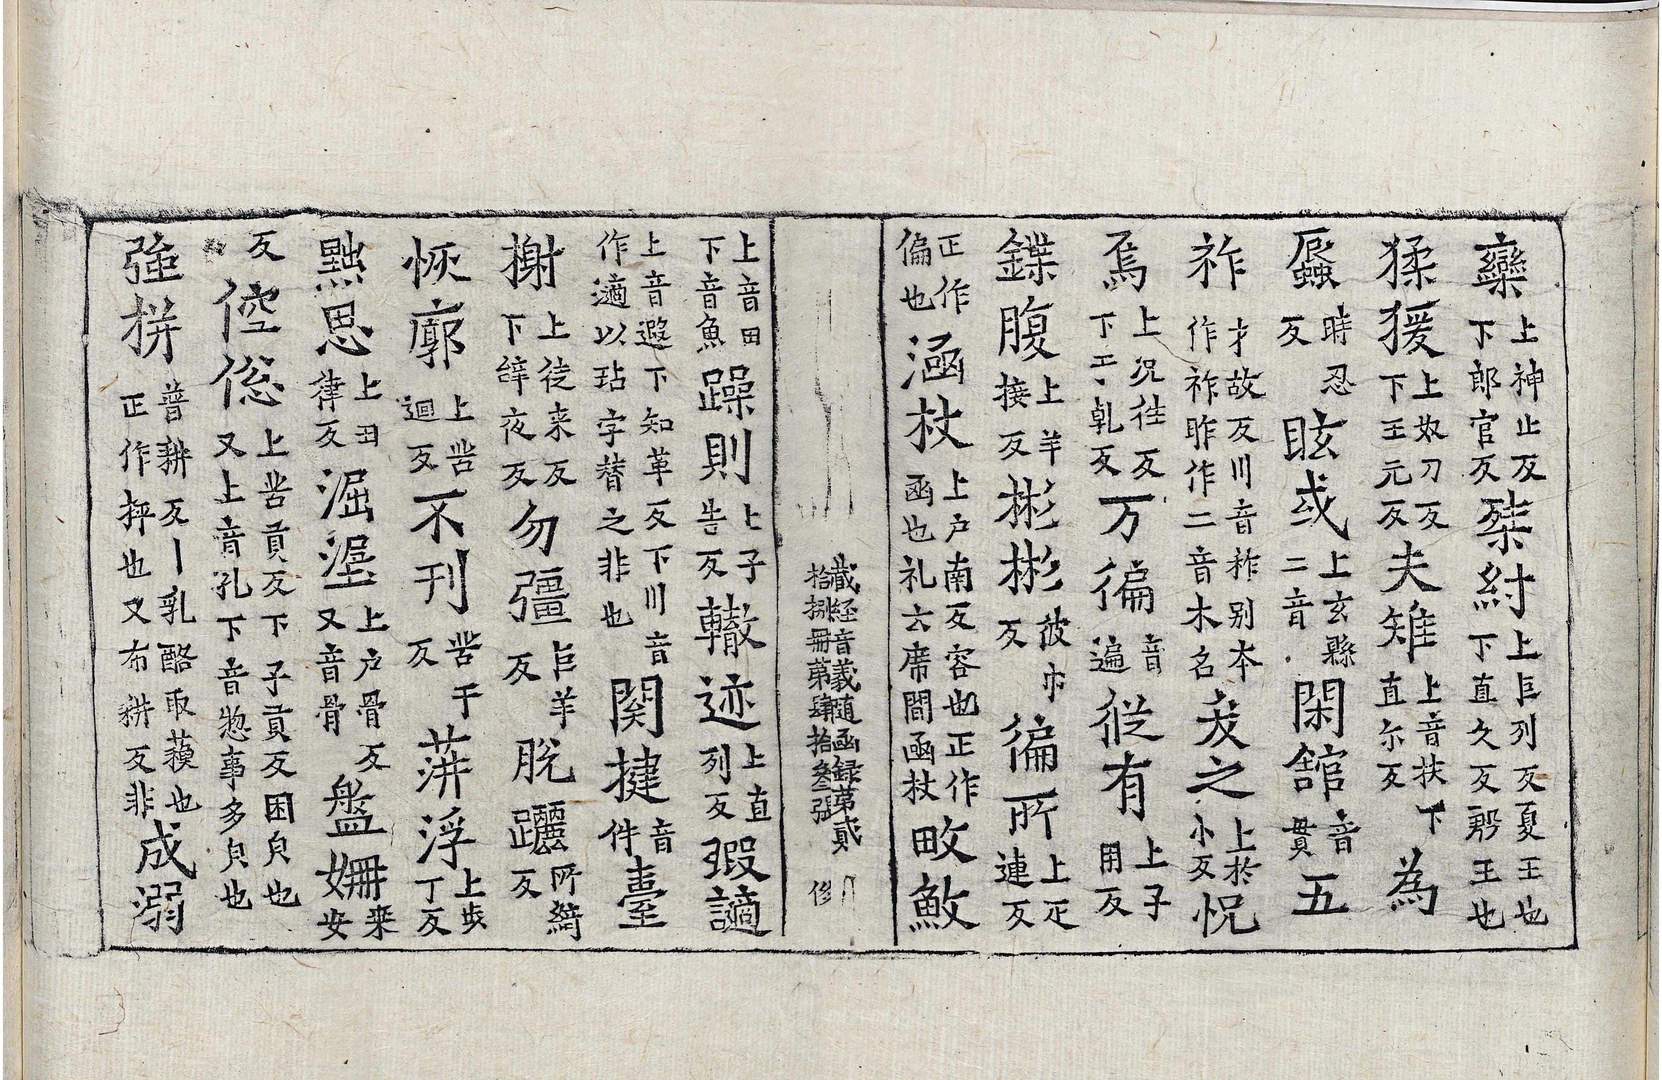 欒上神止反下郎官反桀紂上巨列反夏王也下直久反殷王也
猱猨上奴刀反下王元反夫雉上音扶下直尓反為
蜃時忍反眩或上玄縣二音閑舘音貫五
祚才故反川音祚别本作祚昨作二音木名㚣之上於小反怳
焉上况往反下王乹反万徧音遍從有上子用反
鍱腹上羊接反彬彬彼巾反徧所上疋連反
正作偏也涵杖上户南反容也正作函也礼云席間函杖畋䱷
藏経音義随函録第貳拾捌冊第肆拾叄張 俢
上音田下音魚躁則上子告反轍迹上直列反瑕讁
上音遐下知革反下川音作適以玷字替之非也関揵音件臺
榭上徒来反下辝夜反勿彊巨羊反脱躧所綺反
恢廓上苦迴反不刊苦干反蓱浮上步丁反
黜思上丑律反淈㲽上户骨反又音骨盤姍桒安
反倥偬上苦貢反下子貢反困皃也又上音孔下音惣事多皃也
強拼普耕反丨乳酪取䕼也正作抨也又布耕反非成溺